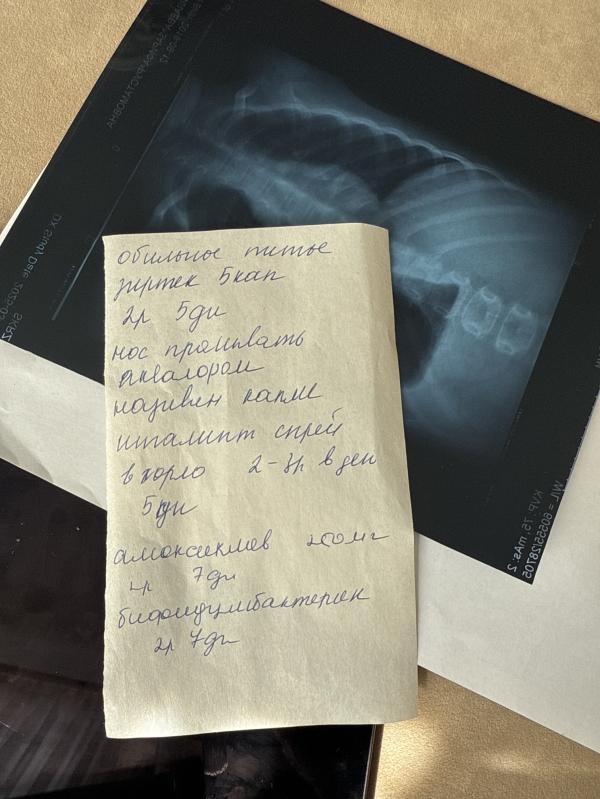 обильное питье
зиртек 5кап
2р 5дн
нос промывать
аквалором
називен капли
ингалипт спрей
в горло 2-3р в ден
5дн
амоксиклав 250мг
2р 7дн
бифидумбактерин
2р 7дн
DX Study Date
KVP: 75, mAs: 2